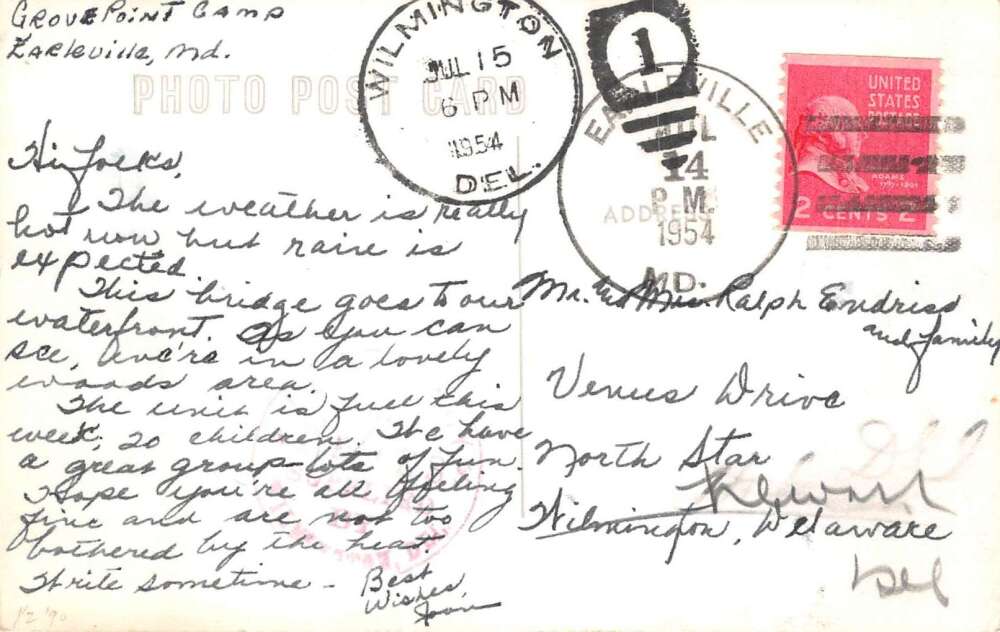 Grove Point Camp
Earleville, Md.
PHOTO POST CARD
WILMINGTON
JUL 15
6 PM
1954
DEL.
1
EARLEVILLE
JUL
14
P.M.
1954
MD.
ADDRESS
UNITED
STATES
POSTAGE
ADAMS
1797-1801
2 CENTS 2
Hi folks,
The weather is really
hot now but rain is
expected.
This bridge goes to our
waterfront. As you can
see, we're in a lovely
woods area.
The unit is full this
week, 20 children. We have
a great group - lots of fun.
Hope you're all feeling
fine and are not too
bothered by the heat.
Write sometime -
Best
Wishes,
Joan
Mr. & Mrs. Ralph Endriss
and family
Venus Drive
North Star
Newark
Wilmington, Delaware
Del
1/2 '90